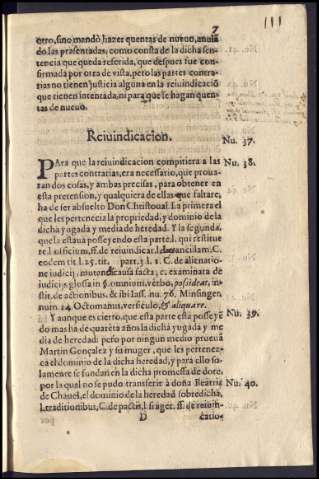 7
otro, sino mandò hazer quentas de nueuo, anulã
do las presentadas, como consta de la dicha sen-
tencia que queda referida, que despues fue con-
firmada por otra de vista, pero las partes contra-
rias no tienen justicia alguna en la reiuindicaciõ
que tienen intentada, ni para que se hagan quen-
tas de nueuo.
Reiuindicacion.
Nu. 37.
PAra que la reiuindicacion compitiera a las
Nu. 38.
partes contrarias, era necessario, que proua-
ran dos cosas, y ambas precisas, para obtener en
esta pretension, y qualquiera de ellas que faltare,
ha de ser absuelto Don Christoual. La primera el
que les pertenecia la propriedad, y dominio de la
dicha yugada y media de heredad. Y la segunda,
que la estaua posseyendo esta parte, l. qui restitue
re l. officium, ff. de reiuindicar. l. ancilam. C.
eodem tit. l. 25. tit. part. 3. l. 1. C. de alienatio-
ne iudicij, mutandæ causa facta, c. examinata de
iudicijs, glossa in §. omnium, verbo, possidear, in-
stit. de actionibus, & ibi Iass. nu. 76. Minsinger,
num. 24. Octomanus, versiculo, & aliquare.
Nu. 39.
Y aunque es cierto, que esta parte està posseyẽ
do mas ha de quarẽta años la dicha yugada y me
dia de heredad: pero por ningun medio prouã
Martin Gonçalez y su muger, que les pertenez-
ca el dominio de la dicha heredad, y para ello so-
lamente se fundan en la dicha promessa de dote,
por la qual no se pudo transferir à doña Beatriz
Nu. 40.
de Chauel, el dominio de la heredad sobredicha,
l. traditionibus, C. de pactis, l. si ager. ff. de reiuin-
D
catio-